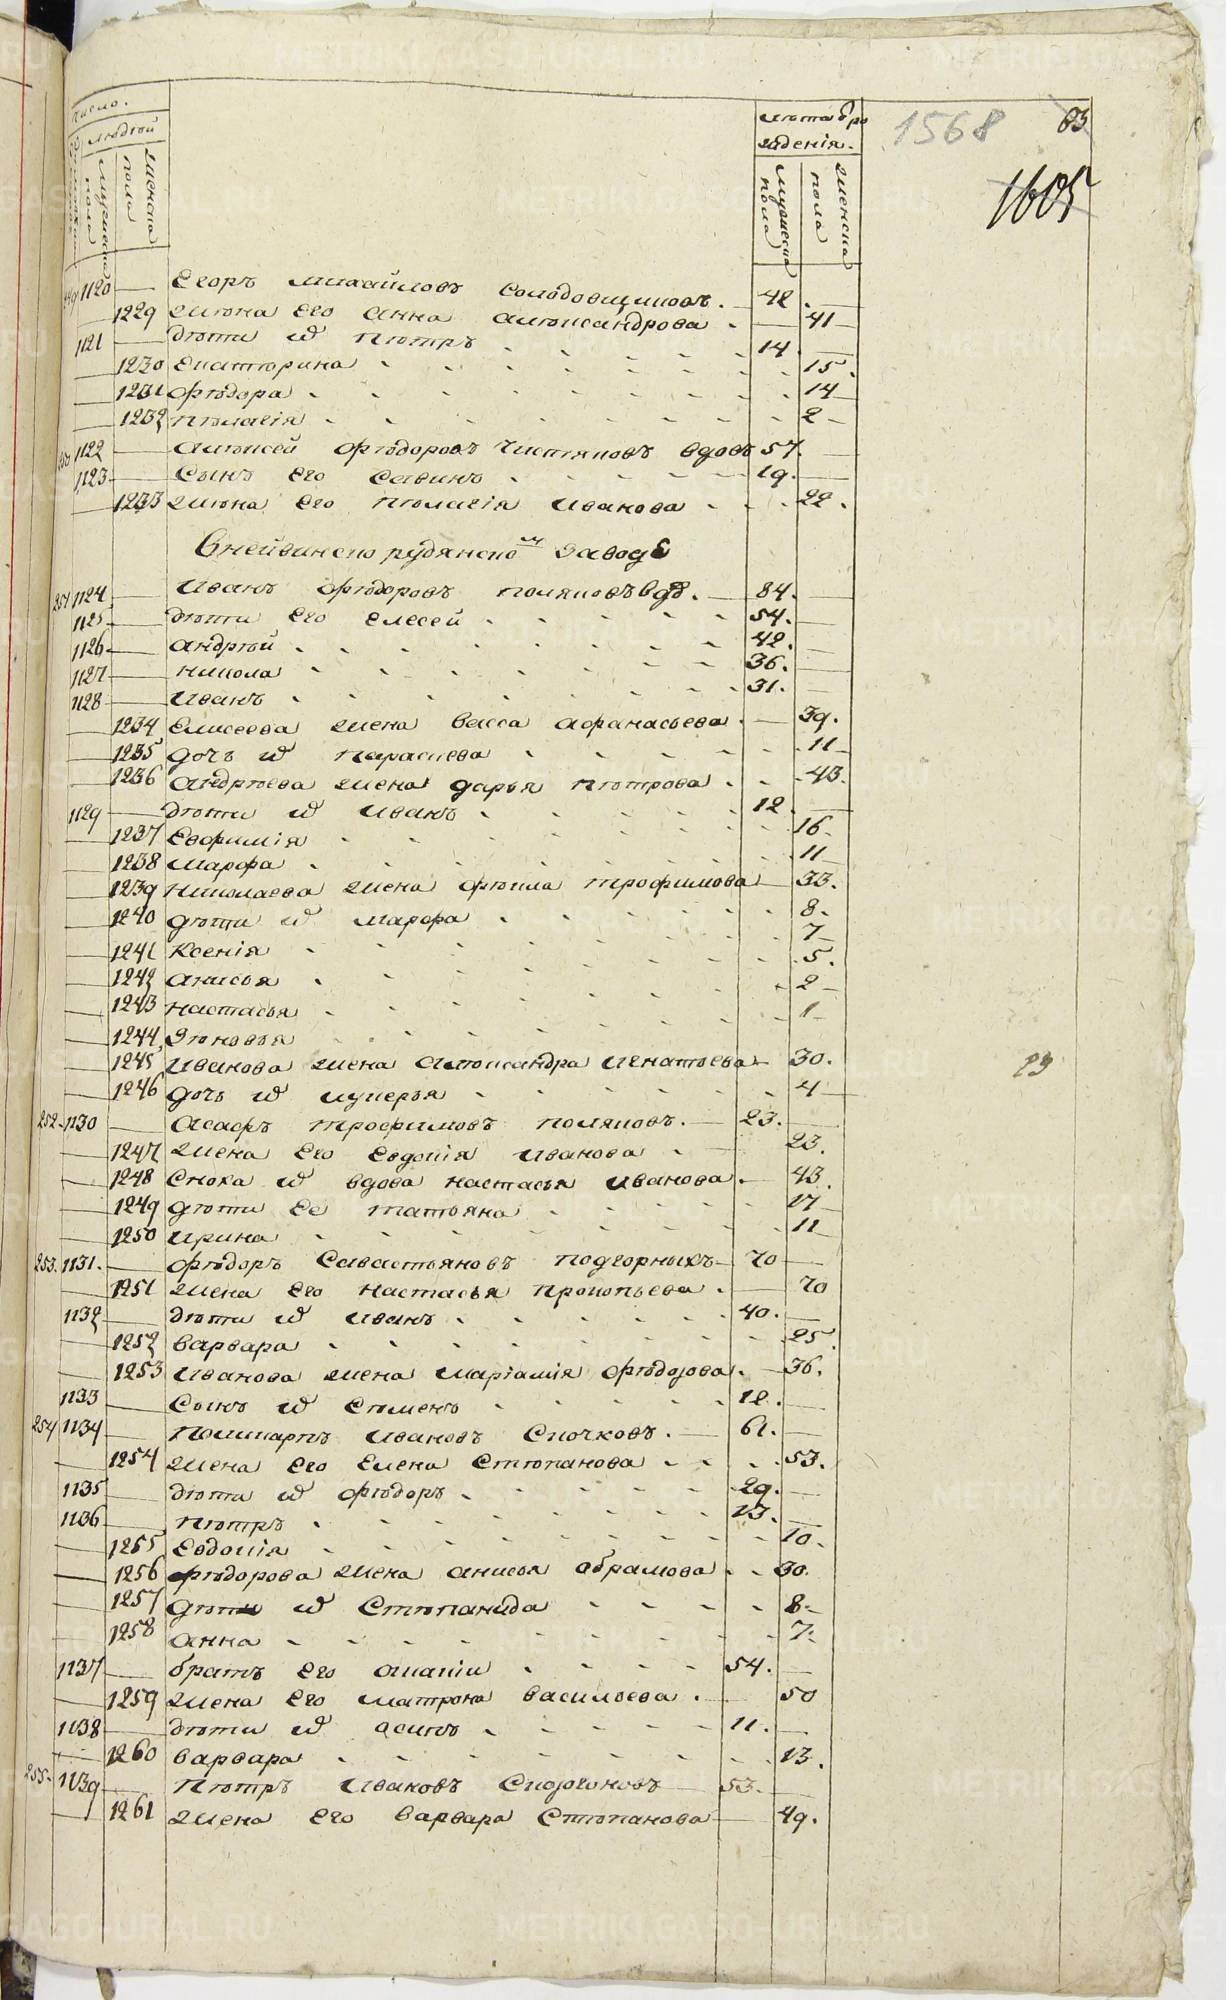 число.
людей
мужеска пола
женска пола
лета от рождения.
мужеска пола
женска пола
1568
83
1605
249 1120 Егоръ Михайловъ Солодовщиковъ. 42.
1229 жена его Анна Александрова 41
1121 дети их Петръ 14.
1230 Екатерина 15.
1231 Федора 14
1232 Пелагея 2
250 1122 Алексей Федоровъ Чистяковъ вдовъ 57.
1123 сынъ его Савинъ 19.
1233 жена его Пелагея Иванова 22.
В нейвинско рудянскомъ заводе
251 1124 Иванъ Федоровъ Поляковъ вдв. 84.
1125 дети его Елесей 54.
1126 Андрей 42.
1127 Никола 36.
1128 Иванъ 31.
1234 Елисеева жена Васса Афанасьева 39.
1235 дочь их Парасиева 11
1236 Андреева жена Дарья Петрова 43.
1129 дети их Иванъ 12.
1237 Евфимія 16.
1238 Марфа 11
1239 Николаева жена Фекла Трофимова 33.
1240 дети их Марфа 8.
1241 Ксенія 7
1242 Анисья 5.
1243 Настасья 2
1244 Зеновья 1
1245 Иванова жена Александра Игнатьева 30.
1246 дочь их Лукерья 4
29
252 1130 Асафъ Трофимовъ Поляковъ. 23.
1247 жена его Евдокія Иванова 23.
1248 сноха их вдова Настасья Иванова 43.
1249 дети ее Татьяна 17
1250 Ирина 11
253. 1131. Федоръ Савастьяновъ Подгорныхъ 70
1251 жена его Настасья Прокопьева 70
1132 дети их Иванъ 40.
1252 Варвара 25.
1253 Иванова жена Маріамія Федорова 36.
1133 сынъ их Семенъ 12.
254 1134 Поликарпъ Ивановъ Сиочковъ. 61.
1254 жена его Елена Степанова 53.
1135 дети их Федоръ 29.
1136 Петръ 13.
1255 Евдокія 10.
1256 Федорова жена Анисья Абрамова 30.
1257 дети их Степанида 8.
1258 Анна 7.
1137 братъ его Ананіи 54.
1259 жена его Матрона Васильева 50
1138 дети их Осипъ 11.
1260 Варвара 13.
255. 1139 Петръ Иваковъ 53.
1261 жена его Варвара Степанова 49.